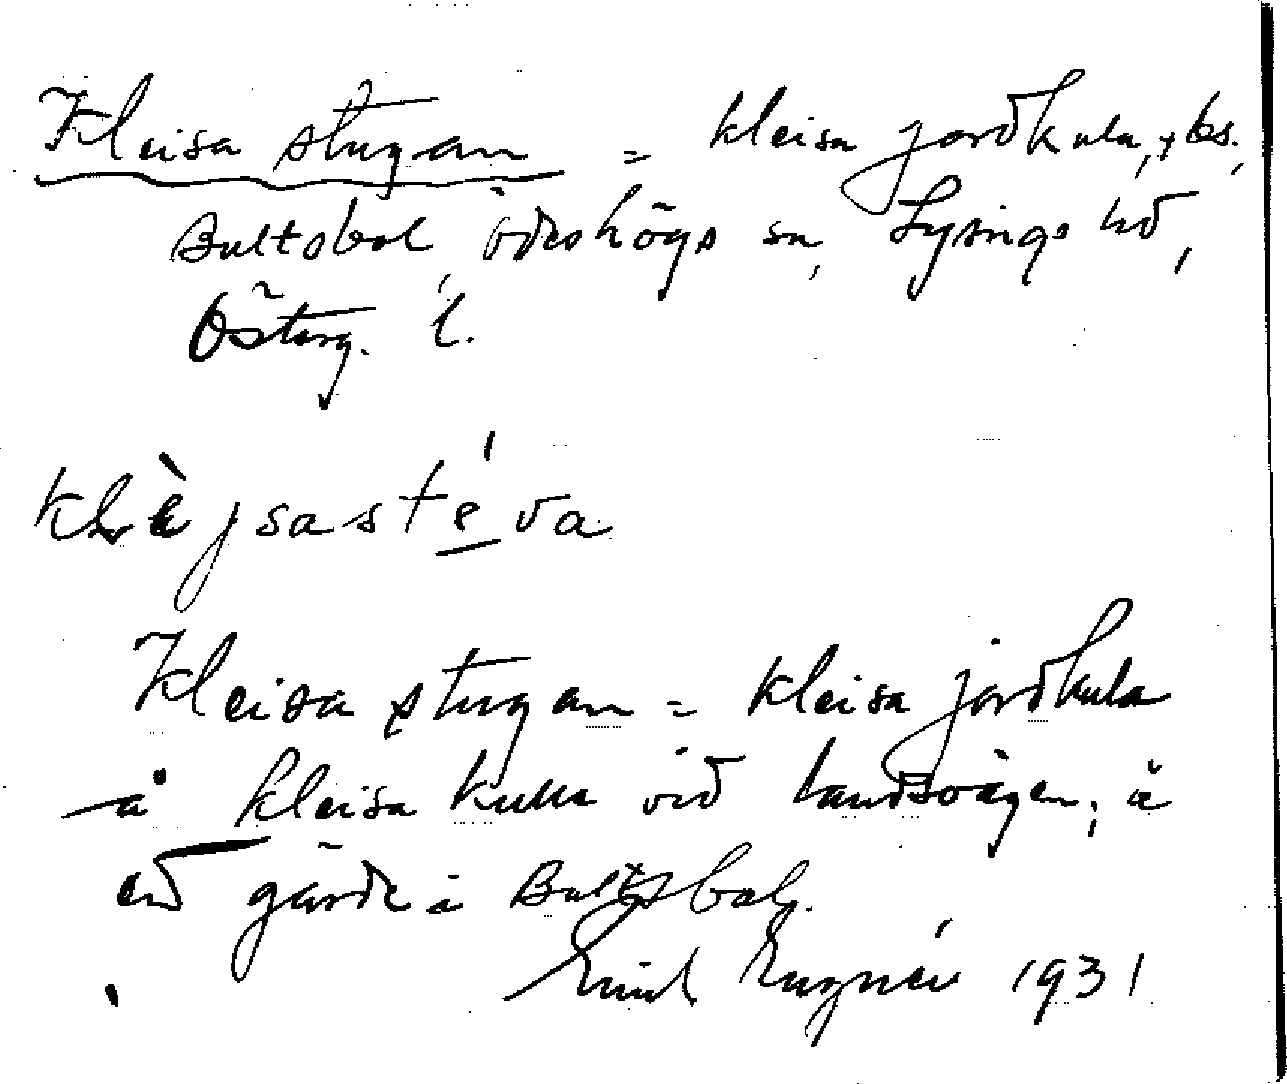 Kleisa stugan = kleisa jordkula, bs.,
Bultsbol, ödeshögs sn, Lysings hd,
Österg. l.
klèjsastéva
Kleisa stugan = kleisa jordkula
å kleisa kulla vid landsvägen, å
ed gärde i Bultsbol.
Emil Eugnér 1931